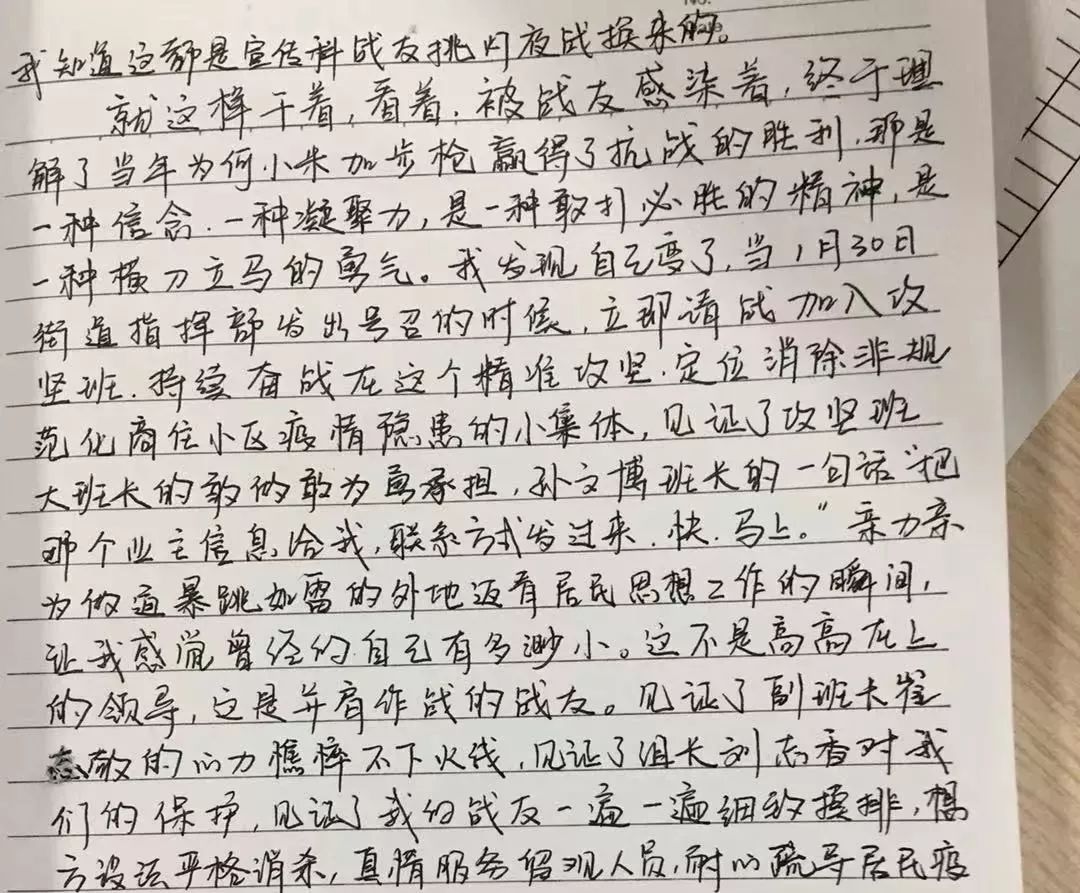 我知道这都是宣传科战友挑灯夜战换来的。
就这样干着,看着,被战友感染着,终于理
解了当年为何小米加步枪赢得了抗战的胜利,那是
一种信念.一种凝聚力,是一种敢打必胜的精神,是
一种横刀立马的勇气。我发现自己变了,当1月30日
街道指挥部发出号召的时候,立即请战加入攻
坚班.持续奋战在这个精准攻坚.定位消除非规
范化商住小区疫情隐患的小集体,见证了攻坚班
大班长的敢做敢为勇承担,孙文博班长的一句话“把
那个业主信息给我,联系方式发过来.快.马上。”亲力亲
为做通暴跳如雷的外地返青居民思想工作的瞬间,
让我感觉曾经的自己有多渺小。这不是高高在上
的领导,这是并肩作战的战友。见证了副班长崔
志敬的心力憔悴不下火线,见证了组长刘志香对我
们的保护,见证了我的战友一遍一遍细致摸排,想
方设法严格消杀,真情服务留观人员,耐心疏导居民疫